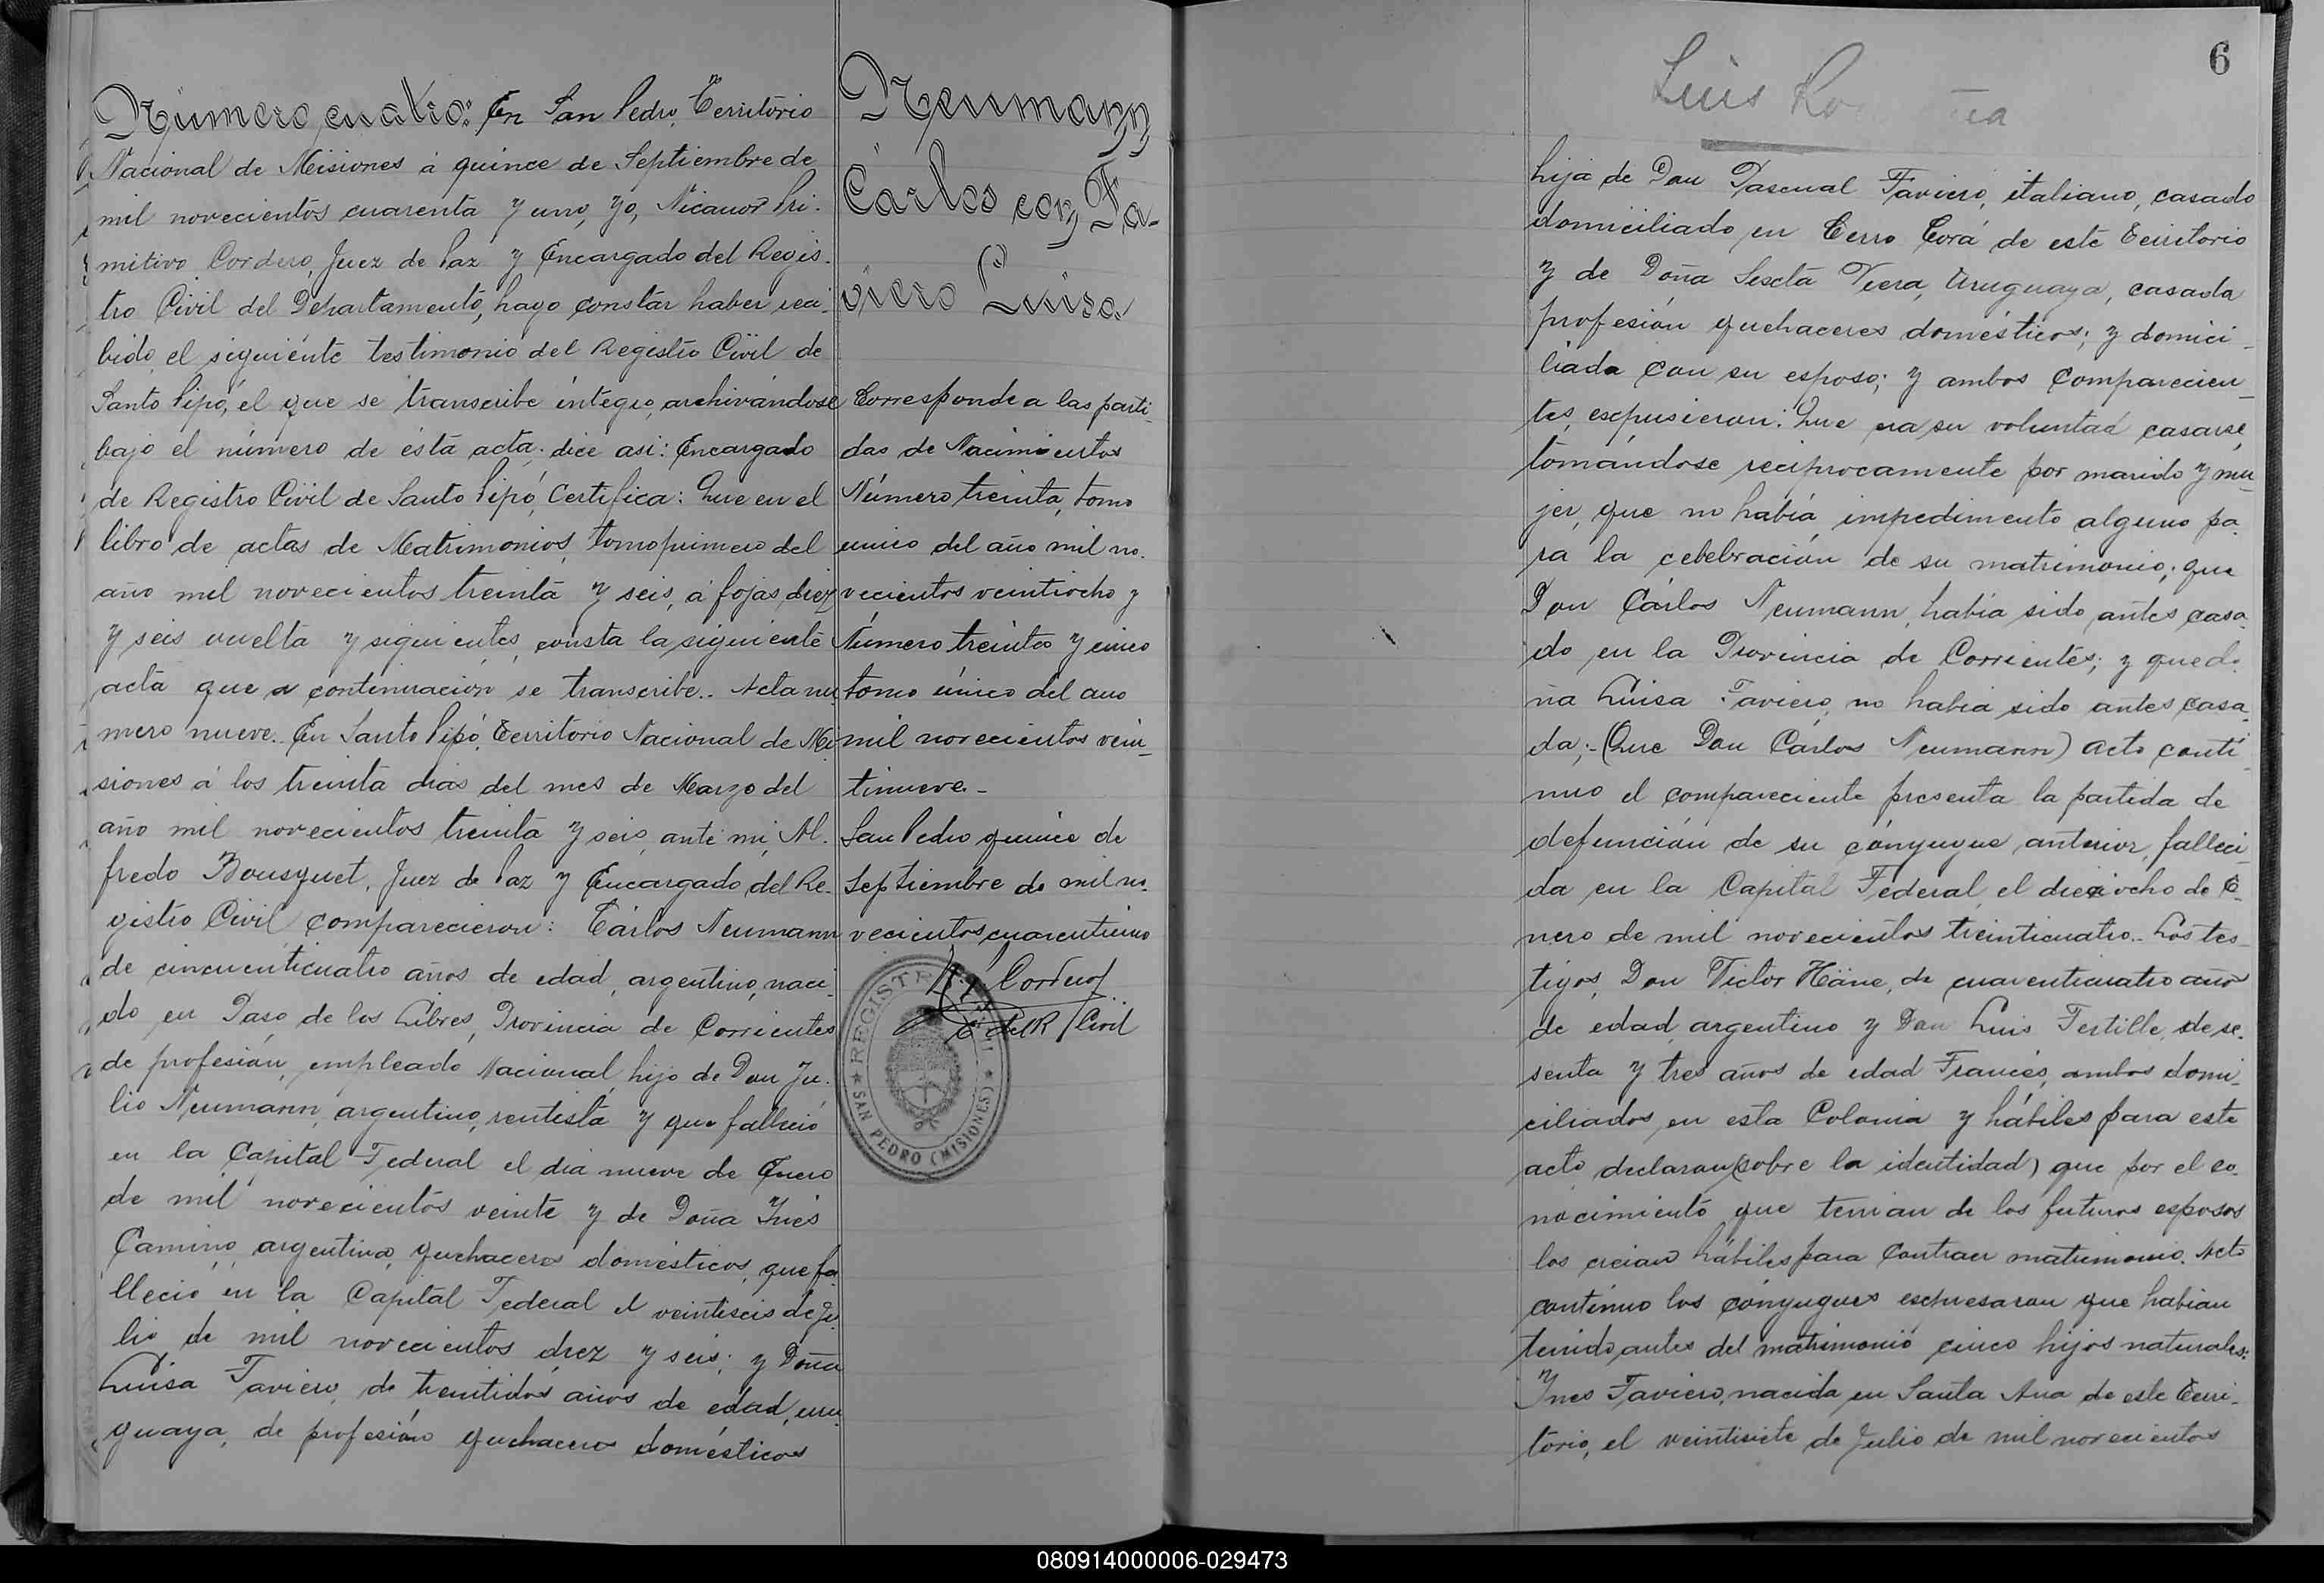 Número cuatro: En San Pedro, Territorio
Nacional de Misiones á quince de Septiembre de
mil novecientos cuarenta y uno, yo, Nicanor Pri-
mitivo Cordero, Juez de Paz y Encargado del Regis-
tro Civil del Departamento, hago constar haber reci-
bido, el siguiente testimonio del Registro Civil de
Santo Pipó, el que se transcribe íntegro, archivándose
bajo el número de ésta acta. dice asi: Encargado
de Registro Civil de Santo Pipó, Certifica: Que en el
libro de actas de Matrimonios, tomo primero del
año mil novecientos treinta y seis, á fojas, diez
y seis vuelta y siguientes, consta la siguiente
acta que a continuación se transcribe.- Acta nú
mero nueve. En Santo Pipó, Territorio Nacional de Mi
siones á los treinta dias del mes de Marzo del
año mil novecientos treinta y seis, ante mi, Al-
fredo Bousquet, Juez de Paz y Encargado del Re-
gistro Civil comparecieron: Cárlos Neumann
de cincuenticuatro años de edad, argentino, naci-
do en Paso de los Libres, Provincia de Corrientes
de profesión, empleado Nacional, hijo de Don Ju-
lio Neumann, argentino, rentista y que falleció
en la Capital Federal el dia nueve de Enero
de mil novecientos veinte y de Doña Inés
Camino, argentina, quehaceres domésticos, que fa
lleció en la Capital Federal el veintiseis de Ju
lio de mil novecientos diez y seis; y Doña
Luisa Faviero, de treintidos años de edad, uru
guaya, de profesión quehaceres domésticos
Neumann
Cárlos con Fa-
viero Luisa
Corresponde a las parti-
das de Nacimientos
Número treinta, tomo
unico del año mil no-
vecientos veintiocho y
Número treinta y cinco
tomo único del año
mil novecientos vein-
tinueve.-
San Pedro quince de
Septiembre de mil no-
vecientos cuarentiuno
N. P. Cordero
E. del R. Civil
REGISTRO CIVIL
SAN PEDRO (MISIONES)
6
Luis
hija de Don Pascual Faviero, italiano, casado
domiciliado en Cerro Corá de este Territorio
y de Doña Sexta Viera, Uruguaya, casada
profesión quehaceres domésticos; y domici-
liada con su esposo; y ambos comparecien-
tes, expusieron: Que era su voluntad casarse,
tomándose reciprocamente por marido y mu-
jer, que no había impedimento alguno pa-
ra la celebración de su matrimonio; que
Don Cárlos Neumann, había sido antes casa-
do en la Provincia de Corrientes; y que do-
ña Luisa Faviero, no habia sido antes casa-
da;-(Que Don Cárlos Neumann) acto conti-
nuo el compareciente presenta la partida de
defunción de su cónyugue anterior, falleci-
da en la Capital Federal, el dieziocho de E-
nero de mil novecientos treinticuatro.- Los tes-
tigos, Don Victor Häne, de cuarenticuatro años
de edad, argentino y Don Luis Fertille, de se-
senta y tres años de edad Francés, ambos domi-
ciliados en esta Colonia y hábiles para este
acto declaran (sobre la identidad) que por el co-
nocimiento que tenian de los futuros esposos
los creian hábiles para contraer matrimonio. Acto
contínuo los cónyugues expresaron que habian
tenido antes del matrimonio cinco hijos naturales:
Ines Faviero, nacida en Santa Ana de este Terri-
torio, el veintisiete de Julio de mil novecientos
080914000006-029473